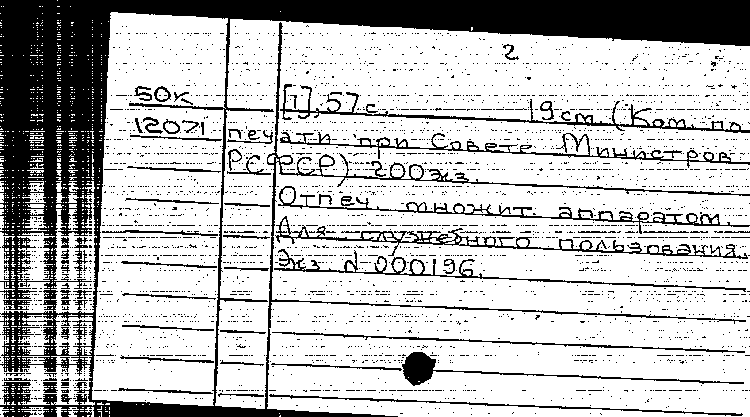 2
50К [1], 57 с. 19 см (Ком. по
12071 печати при Совете Министров
РСФСР) 200 экз.
Отпеч. множит. аппаратом.
Для служебного пользования.
Экз. N 000196.